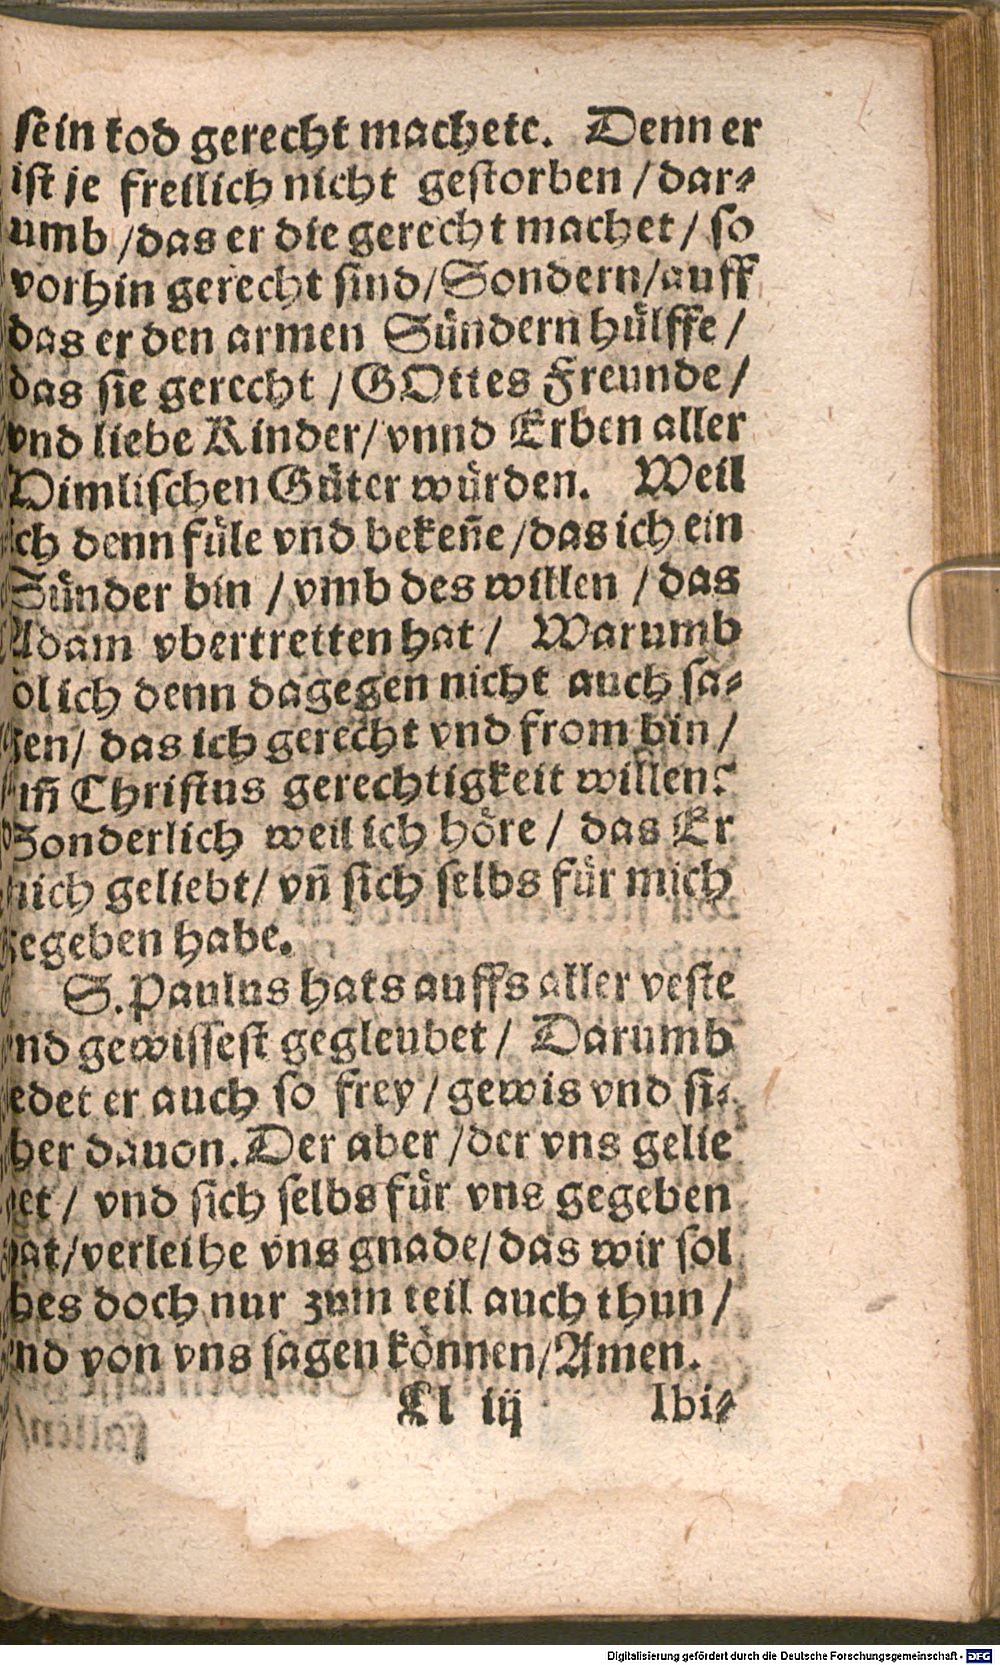 sein tod gerecht machete. Denn er
ist je freilich nicht gestorben / dar-
umb / das er die gerecht machet / so
vorhin gerecht sind / Sondern / auff
das er den armen Sündern hülffe /
das sie gerecht / GOttes Freunde /
vnd liebe Kinder / vnnd Erben aller
Himlischen Güter würden. Weil
ich denn füle vnd bekeñe / das ich ein
Sünder bin / vmb des willen / das
Adam vbertretten hat / Warumb
ol ich denn dagegen nicht auch sa-
gen / das ich gerecht vnd from bin /
im̃ Christus gerechtigkeit willen?
Sonderlich weil ich höre / das Er
mich geliebt / vñ sich selbs für mich
gegeben habe.
S. Paulus hats auffs aller veste
vnd gewissest gegleubet / Darumb
redet er auch so frey / gewis vnd si-
cher dauon. Der aber / der vns gelie
bet / vnd sich selbs für vns gegeben
hat / verleihe vns gnade / das wir sol
hes doch nur zum teil auch thun /
vnd von vns sagen können / Amen.
Ll iij Ibi-
Digitalisierung gefördert durch die Deutsche Forschungsgemeinschaft - DFG